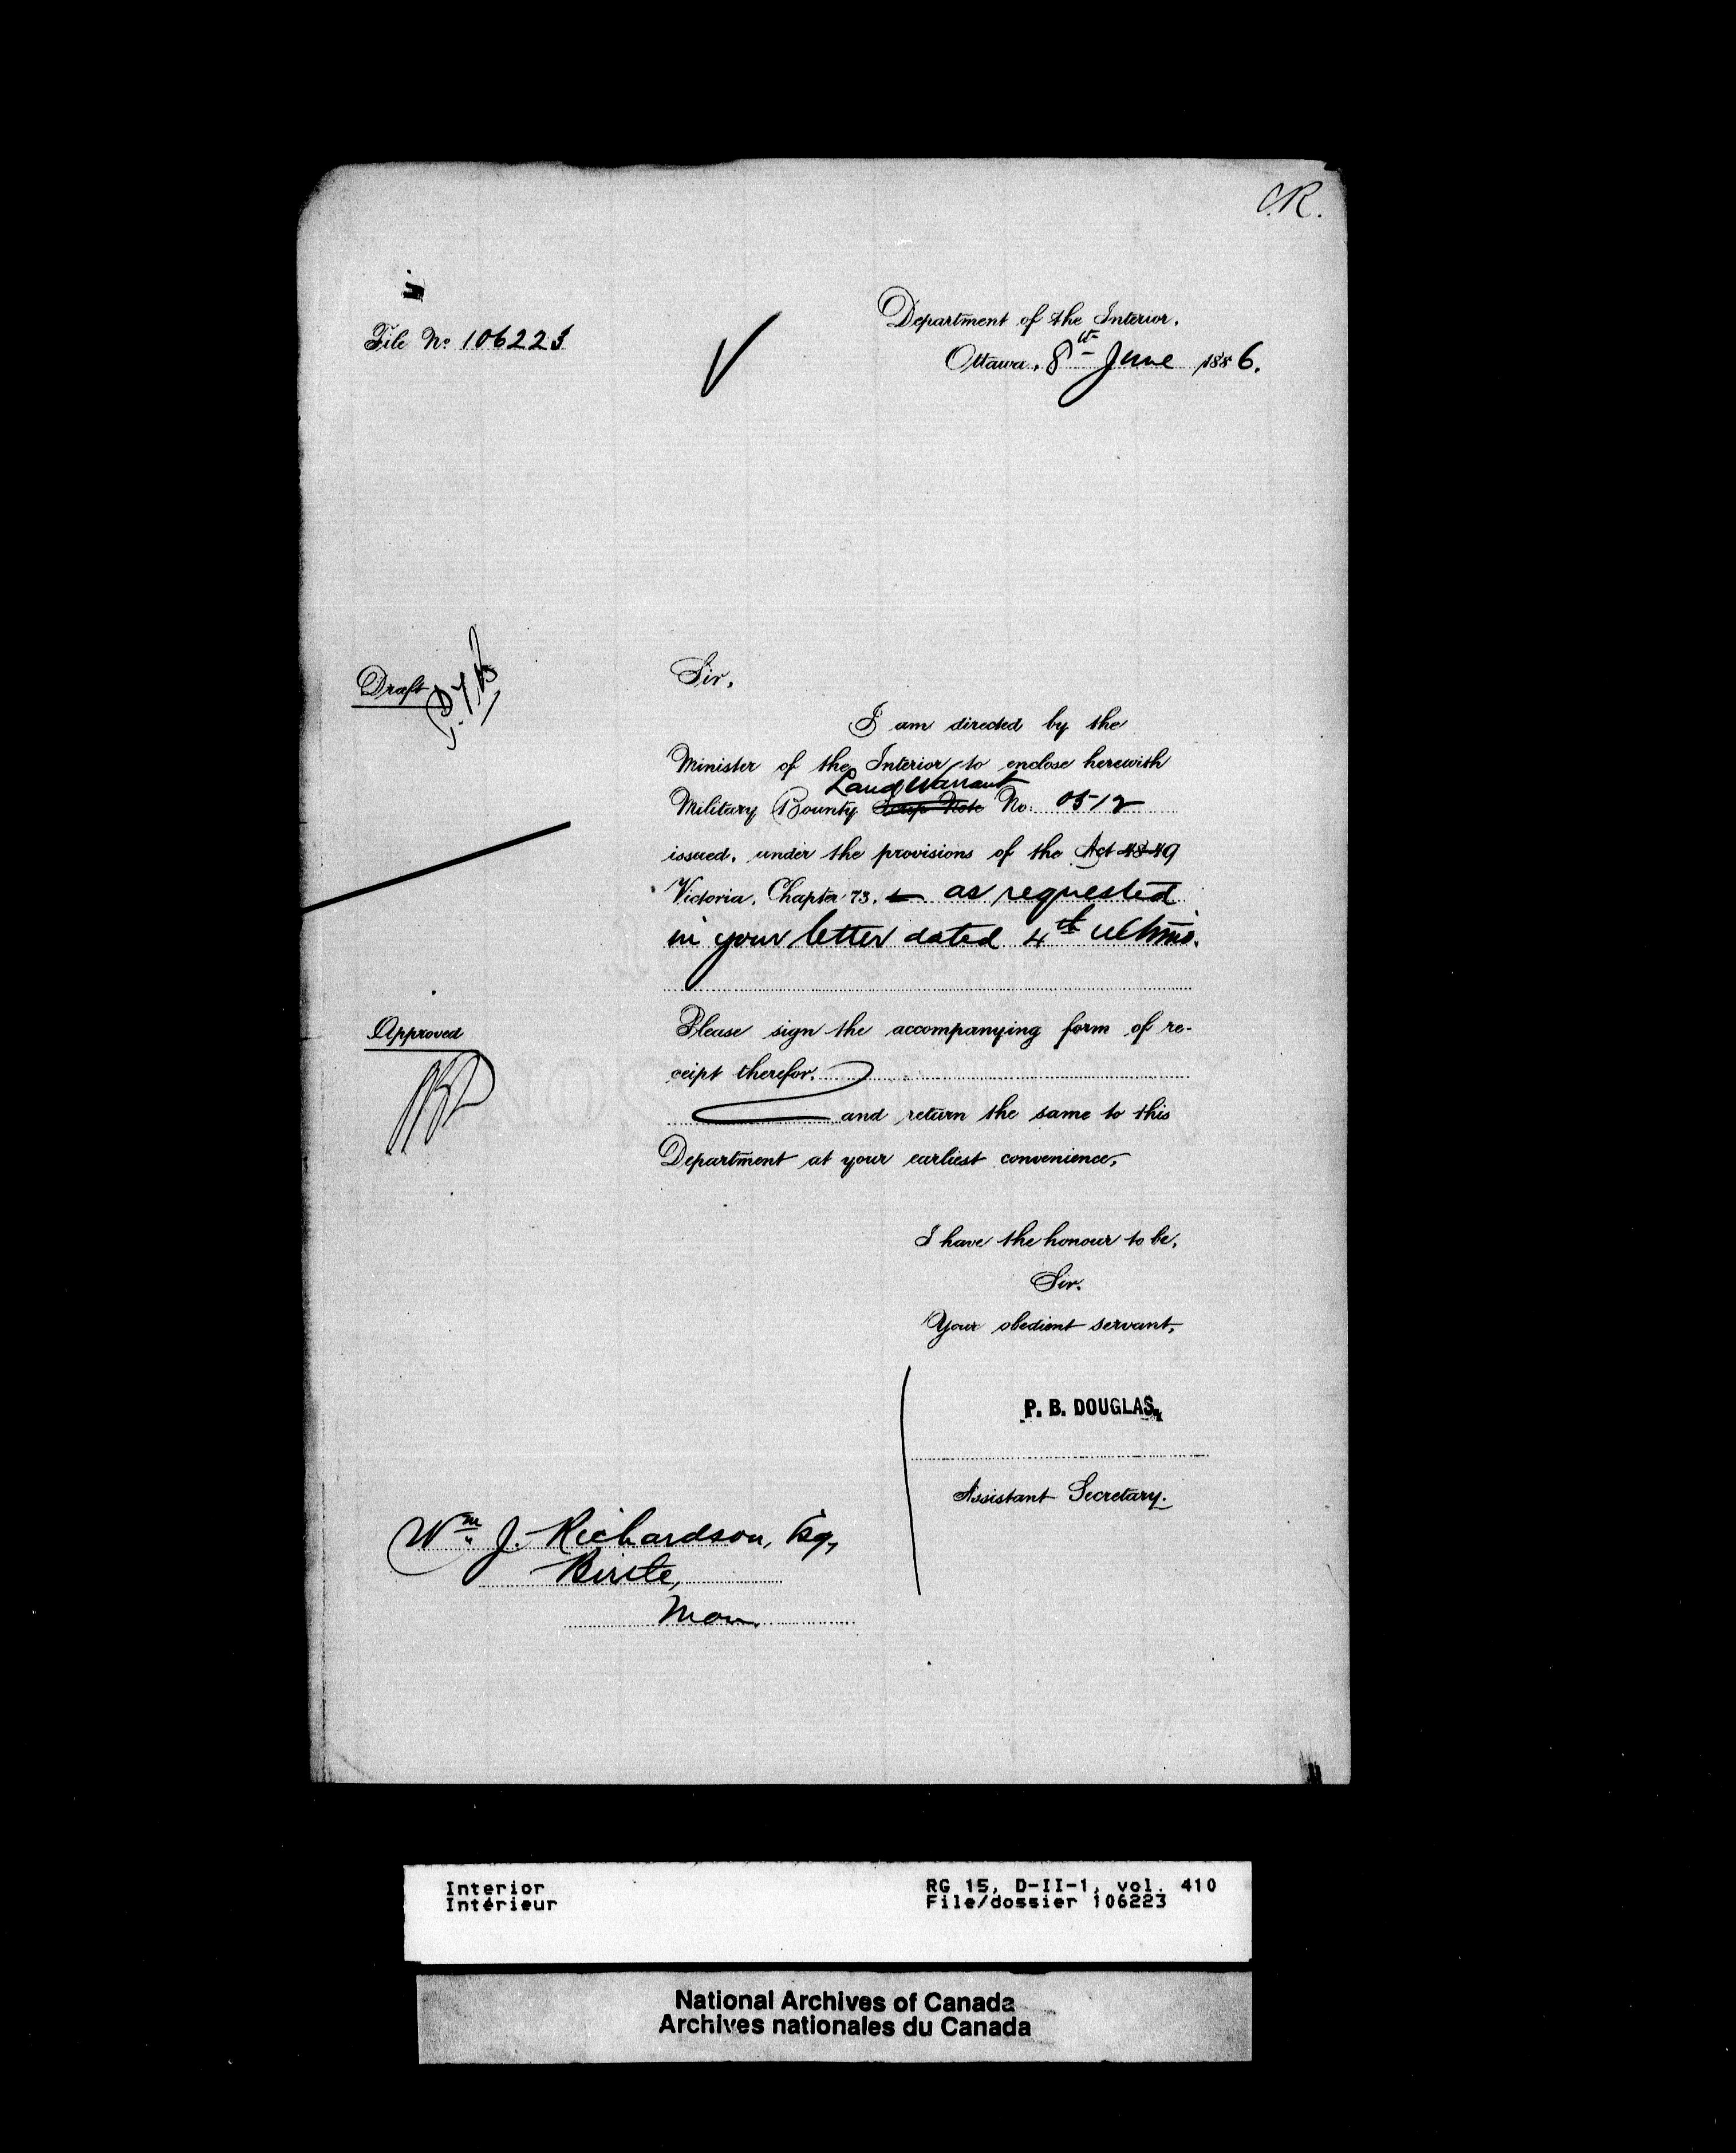 C.R.
File No 106223
Department of the Interior.
Ottawa, 8th June 1886.
Draft
Sir,
I am directed by the
Minister of the Interior to enclose herewith
Land Warrant
Military Bounty Scrip Note No. 0512
issued, under the provisions of the Act 48-49
Victoria, Chapter 73, as requested
in your letter dated 4th ultimo.
Approved
Please sign the accompanying form of re-
ceipt therefor,
and return the same to this
Department at your earliest convenience,
I have the honour to be,
Sir.
Your obedient servant,
P. B. DOUGLAS,
Assistant Secretary.
Wm. J. Richardson, Esq,
Birtle,
Man.
Interior
Intérieur
RG 15, D-II-1, vol. 410
File/dossier 106223
National Archives of Canada
Archives nationales du Canada